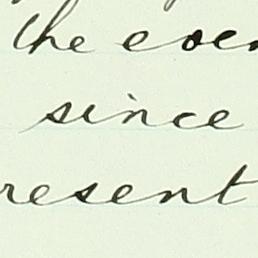 the even
since
resent